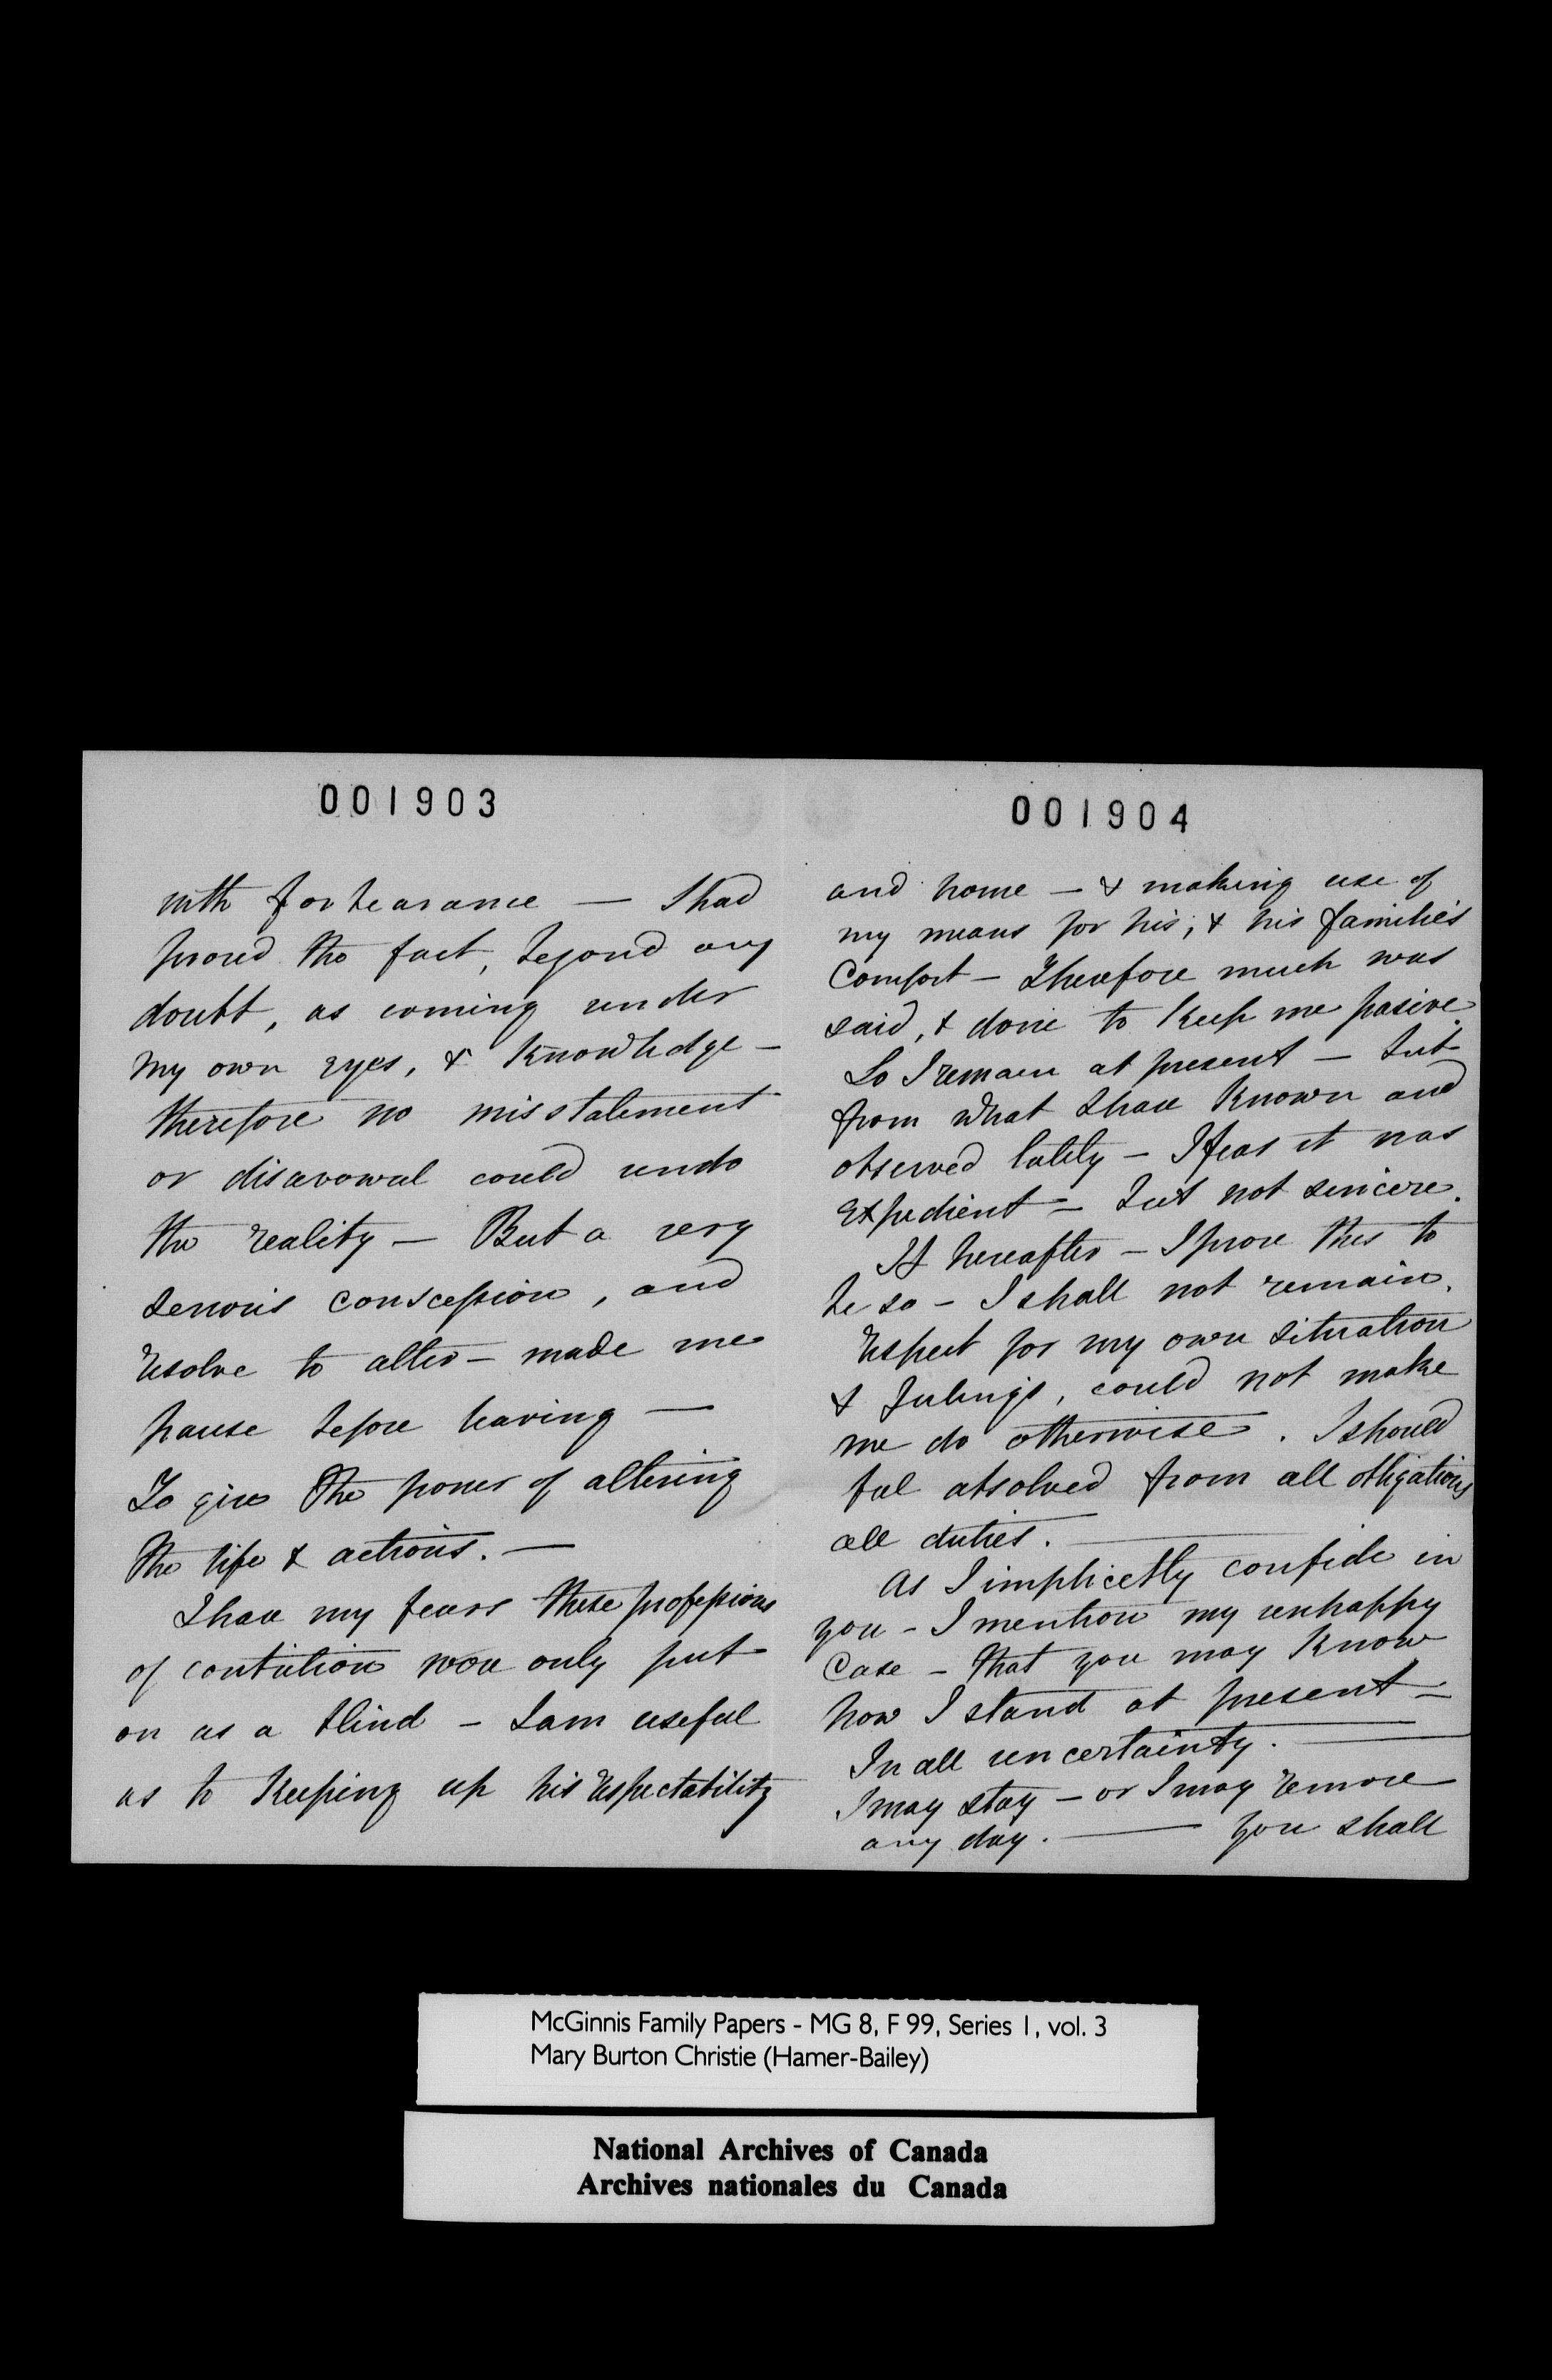 001903
with forbearance — I had
proved the fact, beyond any
doubt, as coming under
my own eyes, & knowledge —
therefore no misstatement
or disavowal could undo
the reality — But a very
serious conscession, and
resolve to alter — made me
pause before leaving —
To give the power of altering
the life & actions. —
I have my fears these professions
of contrition wou only put
on as a blind — I am useful
as to keeping up his respectability
001904
and home — & making use of
my means for his, & his familie's
Comfort — Therefore much was
said, & done to keep me pasive.
So I remain at present — but
from what I have known and
observed lately — I fear it was
expedient — but not sincere.
If hereafter — I prove this to
be so — I shall not remain.
respect for my own situation
& feelings, could not make
me do otherwise. I should
feel absolved from all obligations
all duties. —
As I implicetly confide in
you — I mention my unhappy
Case — that you may know
how I stand at present —
In all uncertainty. —
I may stay — or I may remove
any day. — You shall
McGinnis Family Papers - MG 8, F 99, Series 1, vol. 3
Mary Burton Christie (Hamer-Bailey)
National Archives of Canada
Archives nationales du Canada